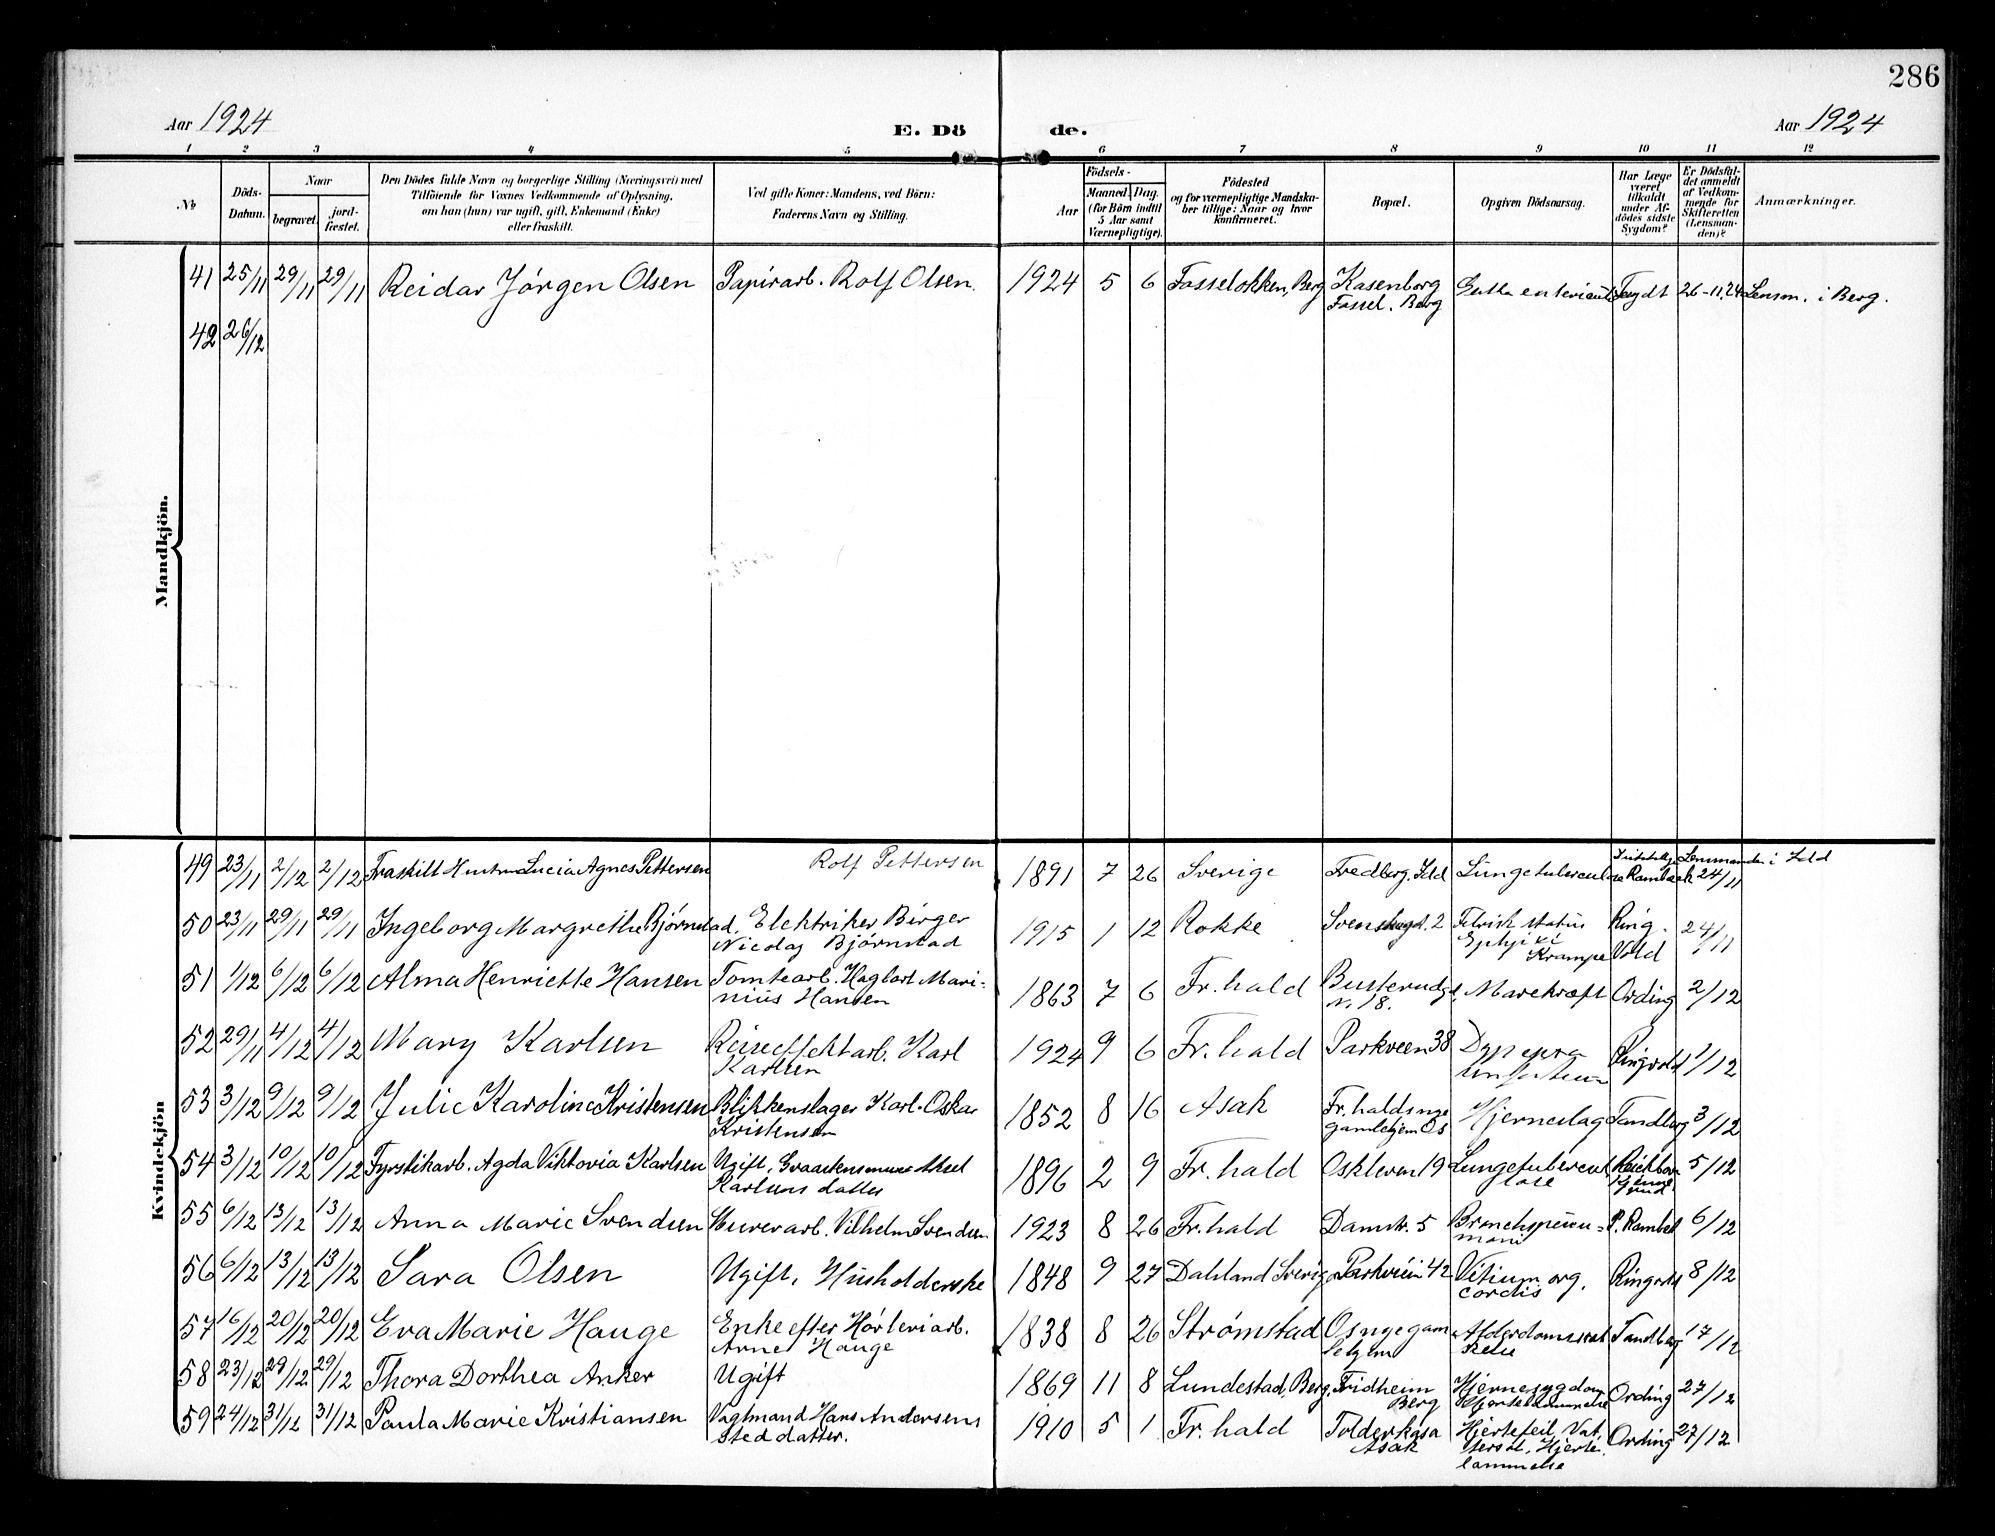 286
Aar 1924 E. Dö de. Aar 1924
1 2 3 4 5 6 7 8 9 10 11 12
No
Döds-Datum.
Naar
begravet.
jord-fæstet.
Den Dödes fulde Navn og borgerlige Stilling (Næringsvei) med
Tilföiende for Voxnes Vedkommende af Oplysning,
om han (hun) var ugift, gift, Enkemand (Enke)
eller fraskilt.
Ved gifte Koner: Mandens, ved Börn:
Faderens Navn og Stilling.
Födsels-
Aar
Maaned. Dag.
(for Börn indtil
5 Aar samt
Værnepligtige).
Födested
og for værnepligtige Mandska-
ber tillige: Naar og hvor
konfirmeret.
Bopæl.
Opgiven Dödsaarsag.
Har Læge
været
tilkaldt
under Af-
dödes sidste
Sygdom?
Er Dödsfal-
det anmeldt
af Vedkom-
mende for
Skifteretten
(Lensman-
den)?
Anmærkninger.
Mandkjön.
41 25/11 29/11 29/11 Reidar Jørgen Olsen Papirarb. Rolf Olsen. 1924 5 6 Fosseløkken, Berg Kasenborg Fossel. Berg 26-11.24 Lensm. i Berg.
42 26/12
Kvindekjön
49 23/11 2/12 2/12 Fraskilt Hustru Lucia Agnes Pettersen Rolf Pettersen 1891 7 26 Sverige Fredberg. Idd Lungetuberculose Rambæk 24/11 Lensmanden i Idd
50 23/11 29/11 29/11 Ingeborg Margrethe Bjørnstad, Elektriker Birger
Nicolay Bjørnstad 1915 1 12 Rokke Svenskegd. 2 status Krampe Ring-
vold 24/11
51 1/12 6/12 6/12 Alma Henriette Hansen Tomtearb. Hagbart Mari-
nius Hansen 1863 7 6 Fr. hald Busterudgt.
N. 18. Mavekræft Ording 2/12
52 29/11 4/12 4/12 Mary Karlsen Reiseeffektarb. Karl
Karlsen 1924 9 6 Fr. hald Parkveien 38 Ringvold 1/12
53 3/12 9/12 9/12 Julie Karoline Kristensen Blikkenslager Karl Oskar
Kristensen 1852 8 16 Asak Fr. halds nye
gamlehjem Os Hjerneslag Tandberg 3/12
54 3/12 10/12 10/12 Fyrstikarb. Agda Viktoria Karlsen Ugift, Aksel
Karlsens datter 1896 2 9 Fr. hald Oskleven 19 Lungetubercu-
lose 5/12
55 6/12 13/12 13/12 Anna Marie Svendsen Murerarb. Vilhelm Svendsen 1923 8 26 Fr. hald Damstr. 5 Bronchopneu-
moni P. Rambæk 6/12
56 6/12 13/12 13/12 Sara Olsen Ugift, Husholderske 1848 9 27 Dalsland Sverige Parkveien 42 Vitium org.
cordis Ringvold 8/12
57 16/12 20/12 20/12 Eva Marie Hauge Enke efter Høvleriarb.
Arne Hauge 1838 8 26 Strømstad Os nye gam-
lehjem Alderdomssvak-
kelse Tandberg 17/12
58 23/12 29/12 29/12 Thora Dorthea Anker Ugift 1869 11 8 Lundestad, Berg. Fridheim
Berg Hjernesygdom
Hjertelammelse Ording 27/12
59 24/12 31/12 31/12 Paula Marie Kristiansen Vagtmand Hans Andersens
steddatter. 1910 5 1 Fr. hald Tolderkasa
Asak Hjertefeil, Vat-
tersot, Hjerte-
lammelse Ording 27/12